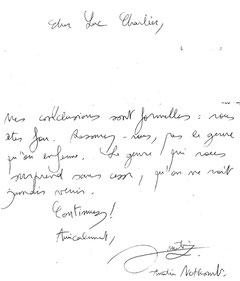 Cher Luc Charlier,
Mes conclusions sont formelles : vous
êtes fou. Rassurez-vous, pas le genre
qu'on enferme. Le genre qui vous
surprend sans cesse, qu'on ne voit
jamais venir.
Continuez!
Amicalement,
Amélie Nothomb